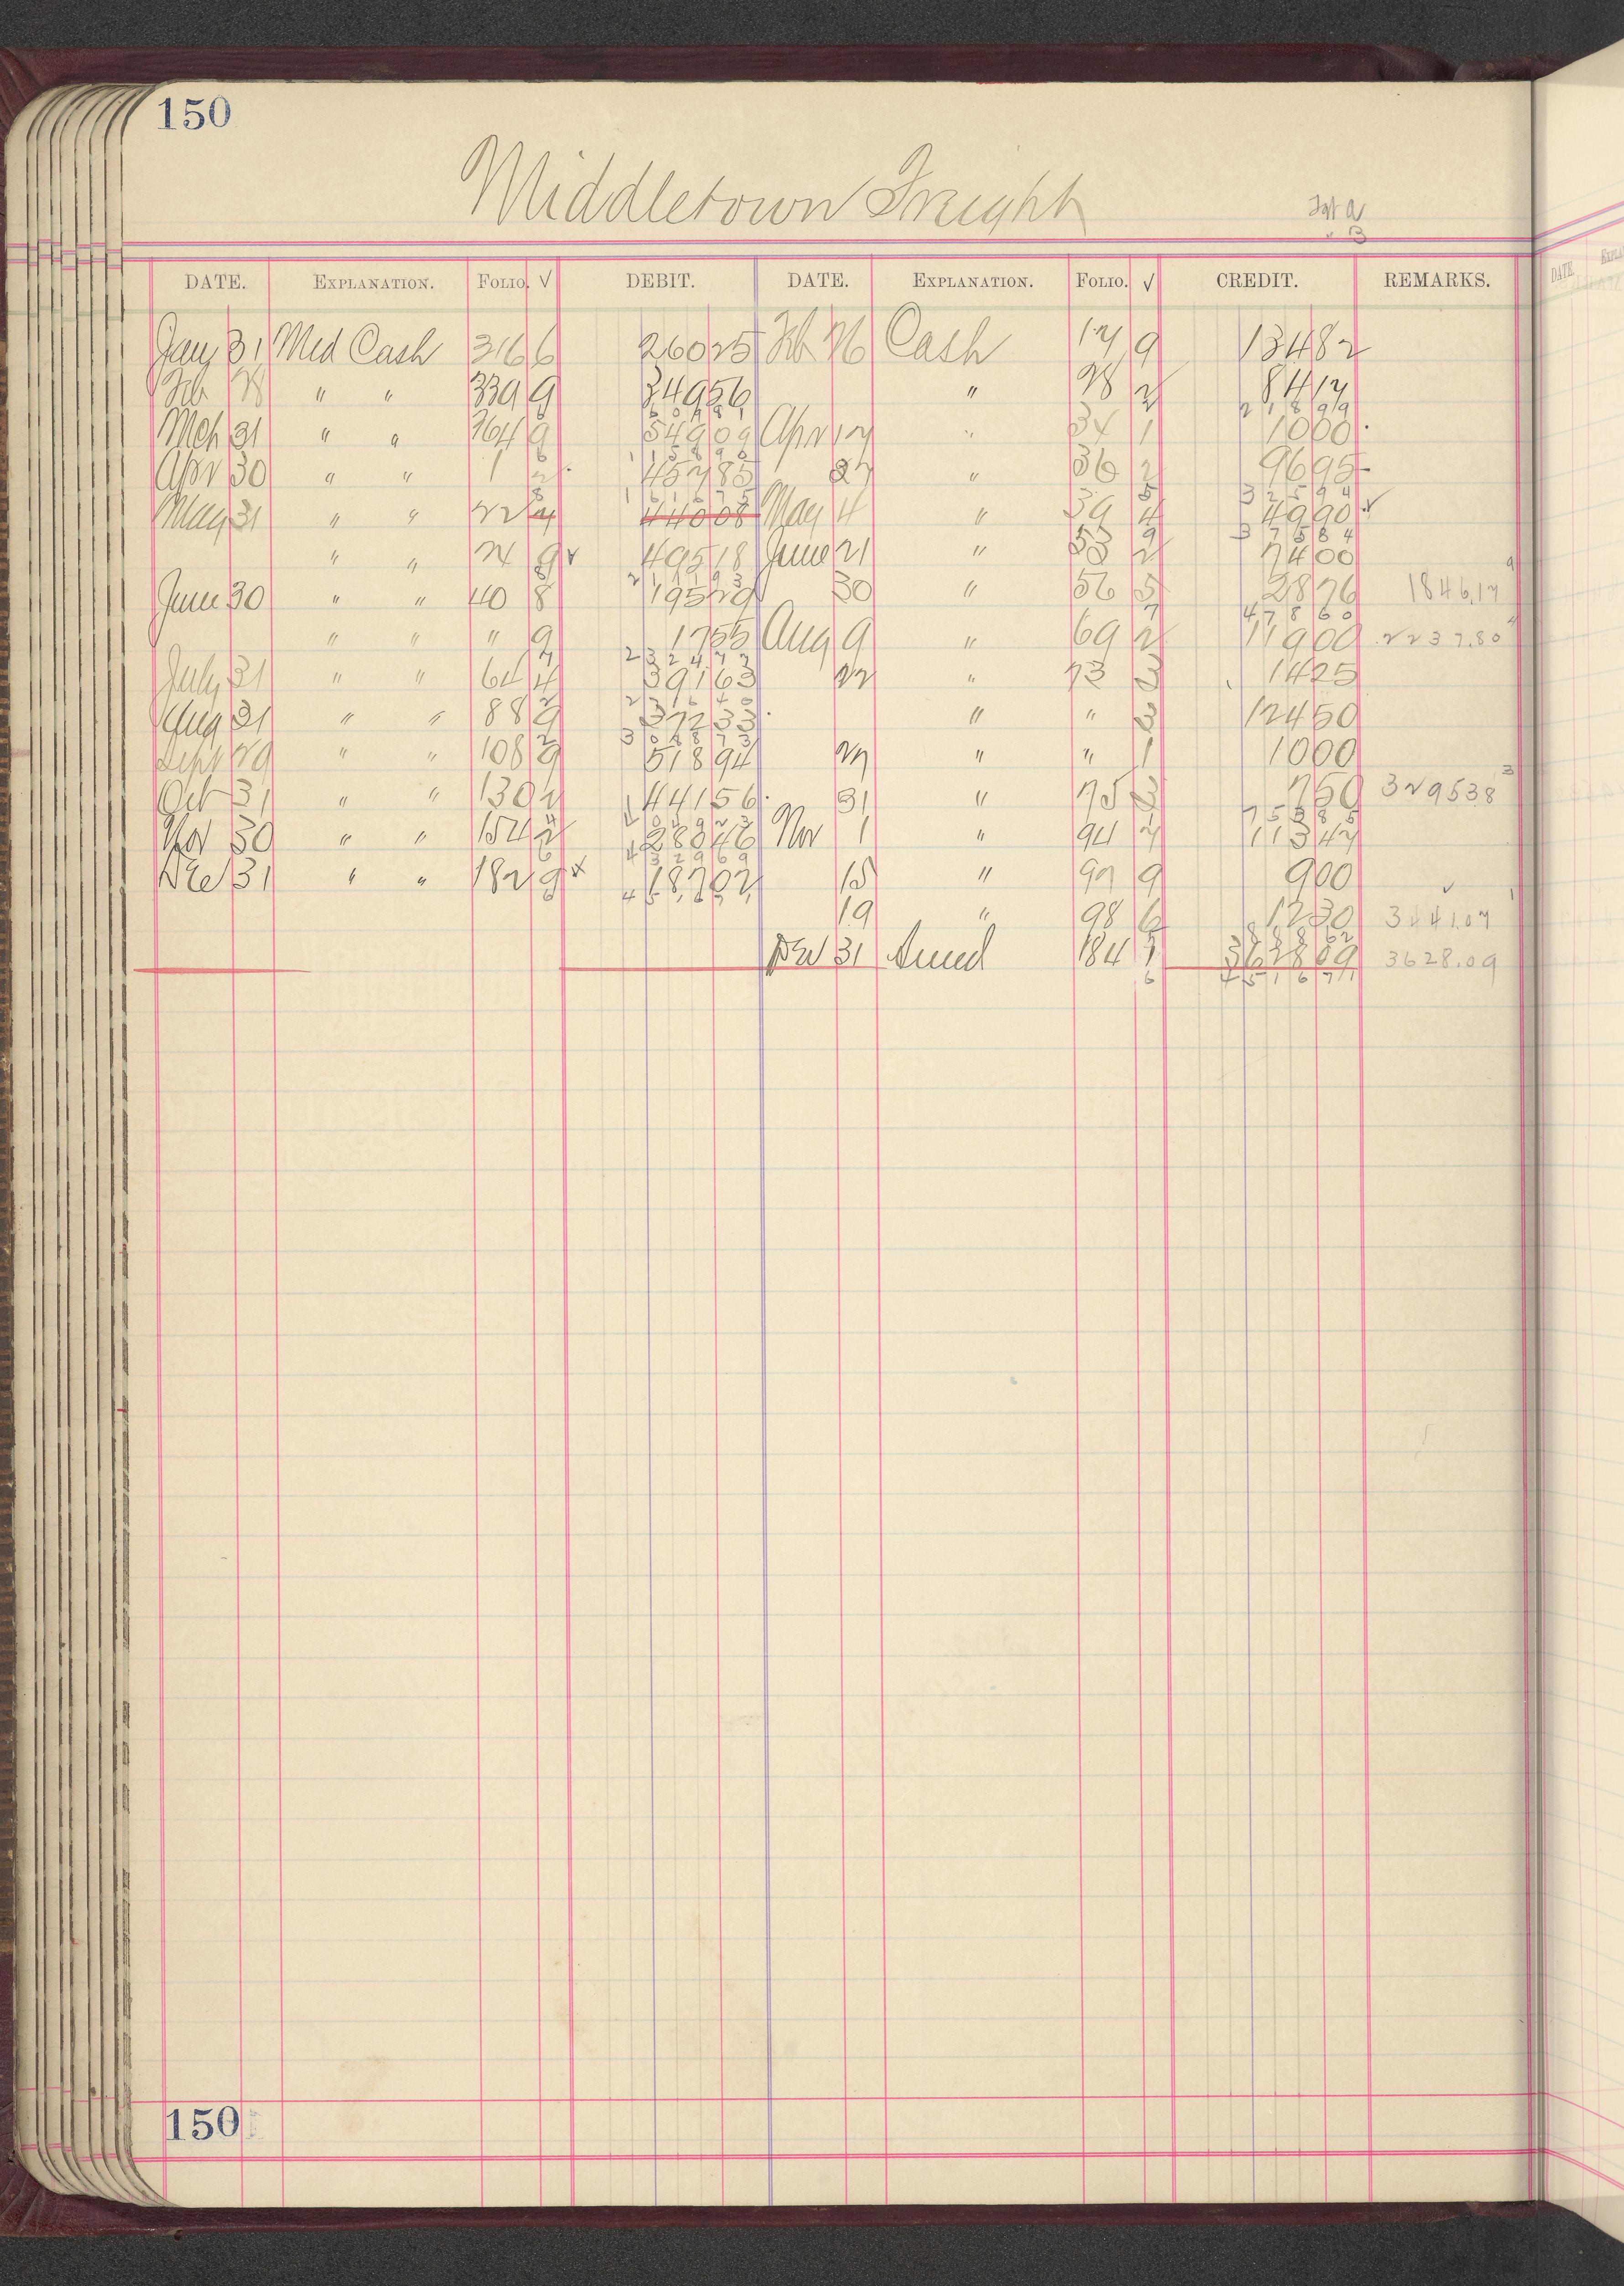 150
Middletown Freight
Frt A
" B
DATE. EXPLANATION. FOLIO. √ DEBIT. DATE. EXPLANATION. FOLIO. √ CREDIT. REMARKS.
Jany 31 Med Cash 316 6 260 25 Feb 26 Cash 17 9 134 82
Feb 28 " " 339 9 349 56 " 28 2 84 17
609 81 218 99
Mch 31 " " 364 9 549 09 Apr 17 " 34 1 10 00
1158 90
Apr 30 " " 1 2 457 85 27 " 36 2 96 95
1616 75 325 94
May 31 " " 22 4 440 08 May 4 " 39 4 49 90 √
375 84
" " 24 9 √ 495 18 June 21 " 53 2 74 00
2111 93
June 30 " " 40 8 195 29 30 " 56 5 28 76 1846.17
478 60
" " " 9 17 55 Aug 9 " 69 2 119 00 2237.80
2324 77
July 31 " " 64 4 391 63 22 " 73 3 14 25
2716 40
Aug 31 " " 88 9 372 33 " " 3 124 50
3088 73
Sept 29 " " 108 9 518 94 27 " " 1 10 00
Oct 31 " " 130 2 441 56 31 " 75 3 7 50 3295.38
4049 23 753 85
Nov 30 " " 154 2 280 46 Nov 1 " 94 7 113 47
4329 69
Dec 31 " " 182 9 x 187 02 15 " 97 9 9 00 √
4516.71
19 " 98 6 12 30 3441.07
888 62
Dec 31 184 1 3628 09 3628.09
4516 71
150